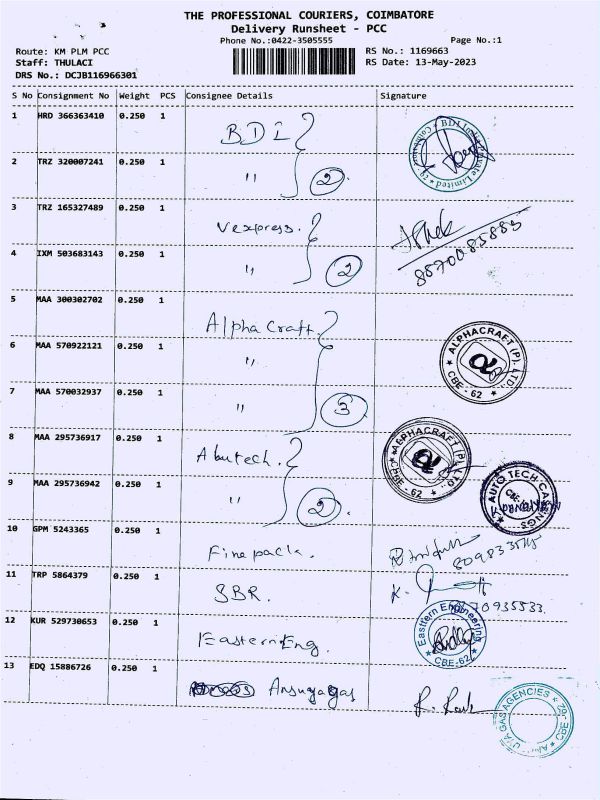 THE PROFESSIONAL COURIERS, COIMBATORE
Delivery Runsheet - PCC
Phone No.:0422-3505555 Page No.:1
Route: KM PLM PCC RS No.: 1169663
Staff: THULACI RS Date: 13-May-2023
DRS No.: DCJB116966301
S No Consignment No Weight PCS Consignee Details Signature
1 HRD 366363410 0.250 1 BDI
2 TRZ 320007241 0.250 1 " 2
3 TRZ 165327489 0.250 1 Vexpress.
8870085885
4 IXM 503683143 0.250 1 " 2
5 MAA 300302702 0.250 1 Alpha Craft.
6 MAA 570922121 0.250 1 " ALPHACRAFT (P). LTD. CBE - 62
7 MAA 570032937 0.250 1 " 3
8 MAA 295736917 0.250 1 Abutech. ALPHACRAFT (P). LTD. CBE - 62
9 MAA 295736942 0.250 1 " 2 AUTO TECH CASTINGS
10 GPM 5243365 0.250 1 Finepack.
11 TRP 5864379 0.250 1 SBR. K.
12 KUR 529730653 0.250 1 Eastern Eng. Easttern Engineering CBE-62
13 EDQ 15886726 0.250 1 Ansuyagas GAS AGENCIES CBE